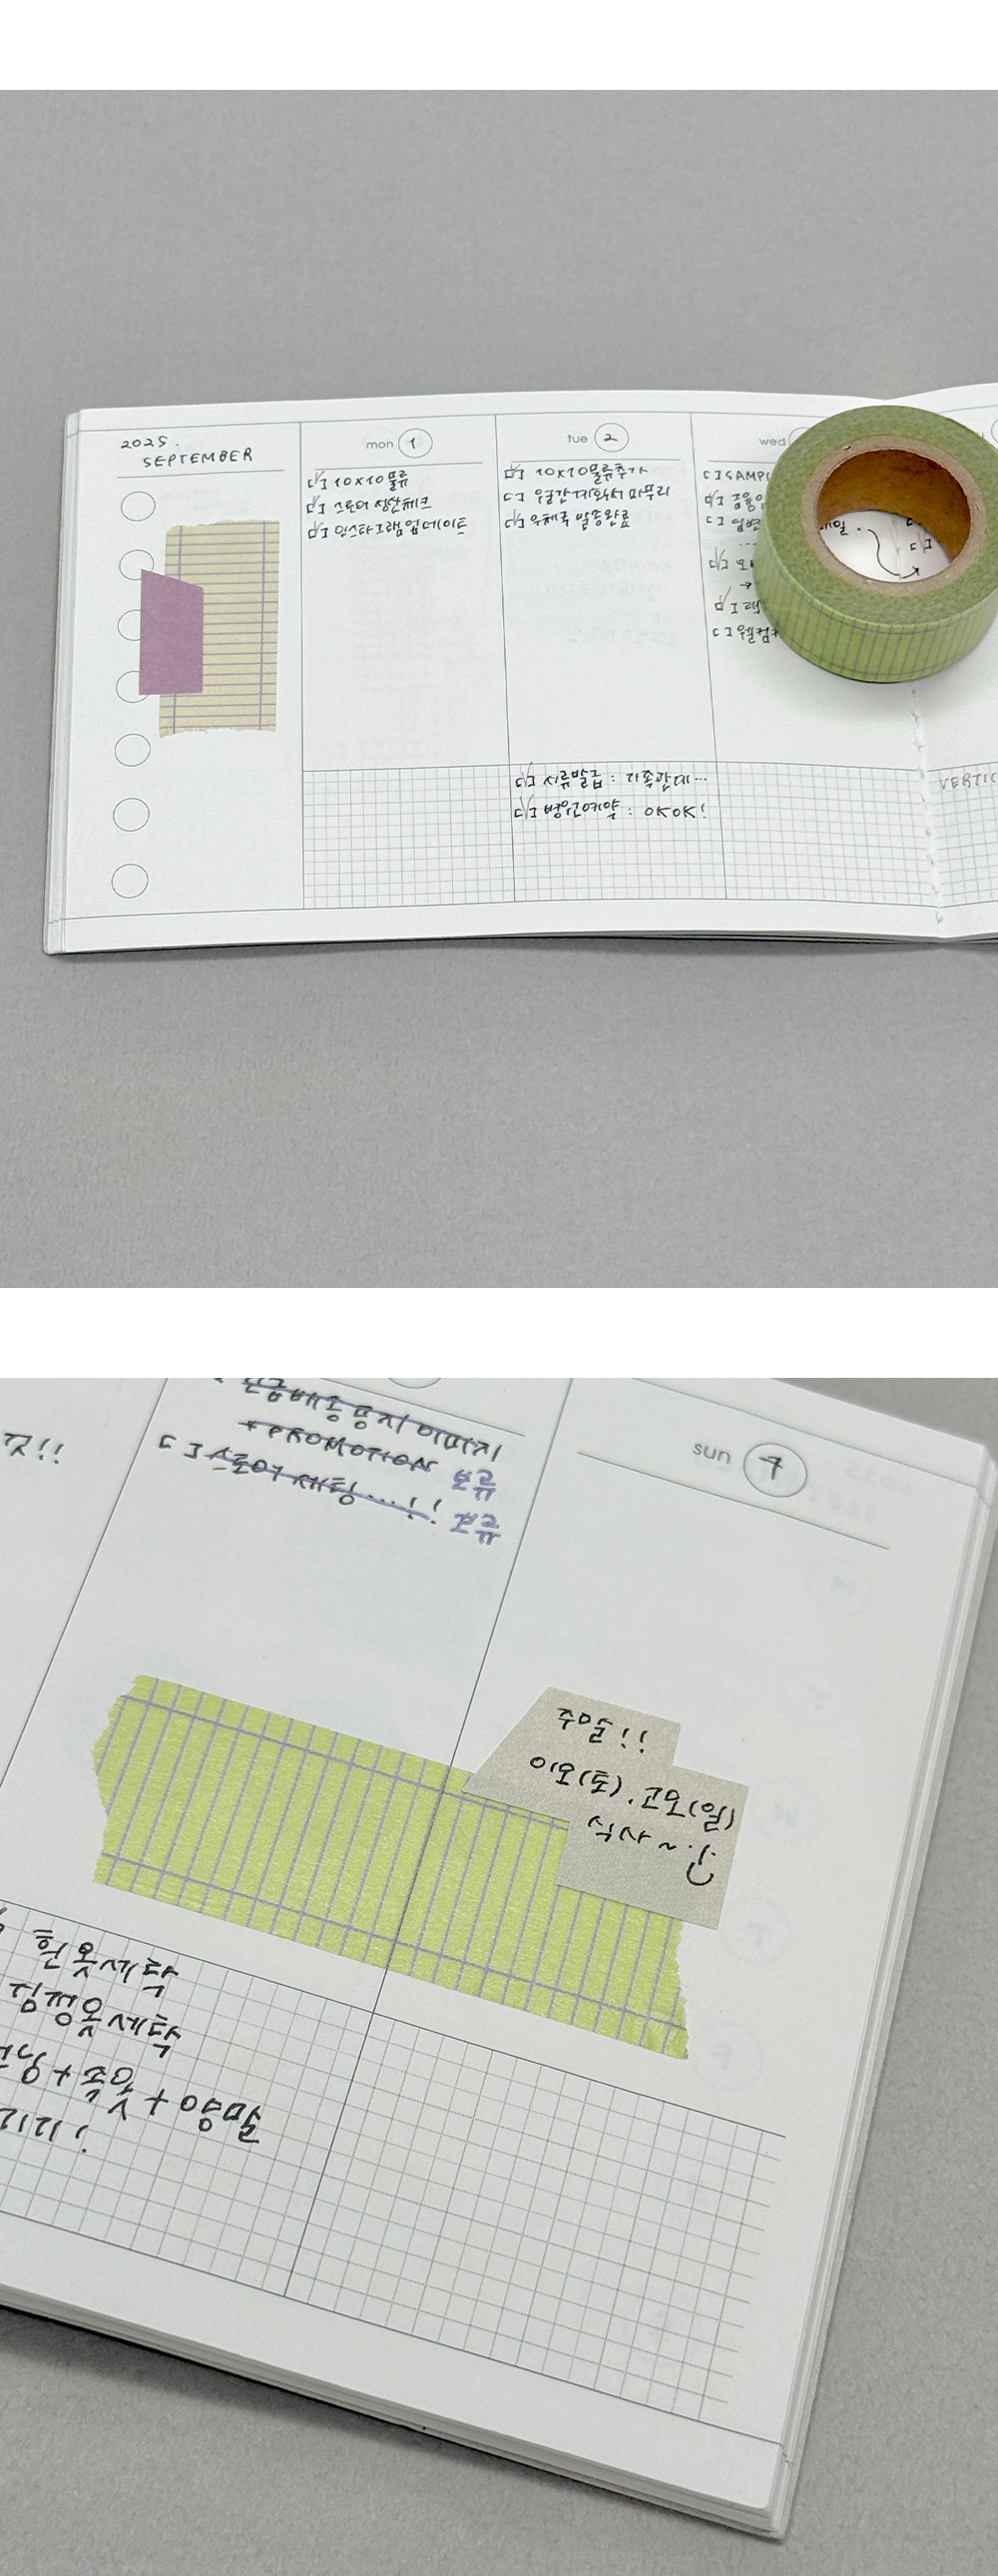 2025.
SEPTEMBER
mon 1
[✓] 10x10 물류
[✓] 스토어 정산체크
[✓] 인스타그램 업데이트
tue 2
[✓] 10x10 물류추가
[ ] 월간계획서 마무리
[✓] 우체국 발송완료
[✓] 서류발급 : 가족관계…
[✓] 병원예약 : OKOK!
wed
[ ] SAMPL
VERTIC
*PROMOTION 보류
[ ] 스토어 세팅…!! 보류
sun 7
주말!!
이모(토).고모(일)
식사~
흰옷세탁
검정옷세탁